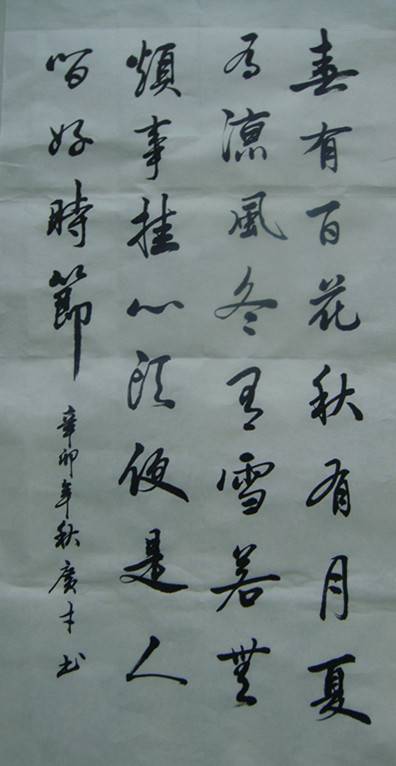 春有百花秋有月夏
有涼風冬有雪若無
煩事挂心頭便是人
間好時節
辛卯年秋廣才书